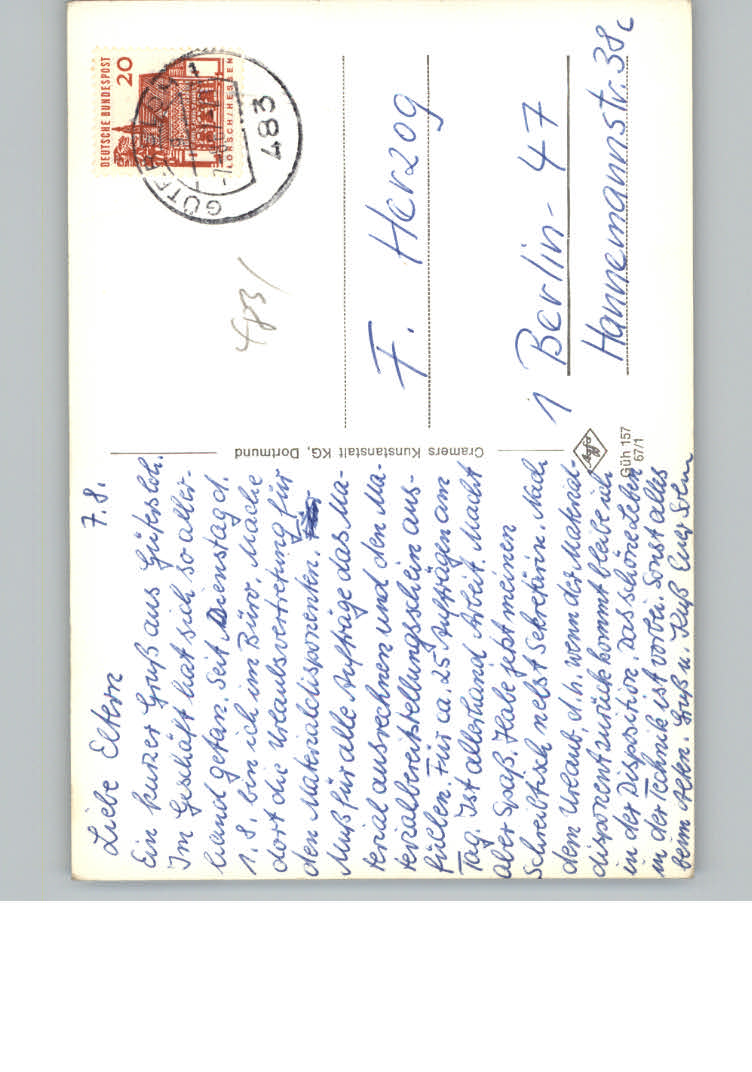 7.8.
Liebe Eltern
Ein kurzer Gruß aus Gütersloh.
Im Geschäft hat sich so aller-
hand getan. Seit Dienstag d.
1.8. bin ich im Büro. Mache
dort die Urlaubsvertretung für
den Materialdisponenten.
Muß für alle Aufträge das Ma-
terial ausrechnen und den Ma-
terialbereitstellungsschein aus-
füllen. Für ca. 25 Aufträgen am
Tag. Ist allerhand Arbeit. Macht
aber Spaß. Habe jetzt meinen
Schreibtisch nebst Sekretärin. Nach
dem Urlaub, d.h. wenn der Material-
disponent zurück kommt bleibe ich
in der Disposition. Das schöne Leben
in der Technik ist vorbei. Sonst alles
beim Alten. Gruß u. Kuß Euer
Cramers Kunstanstalt KG, Dortmund
Agfa
Güh 157
67/1
DEUTSCHE BUNDESPOST
20
LORSCH/HESSEN
483
483/
F. Herzog
1 Berlin-47
Hannemannstr. 38c